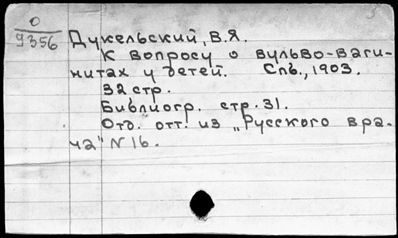 О
9356
Дукельский, В.Я.
К вопросу о вульво-ваги-
нитах у детей. Спъ., 1903.
32 стр.
Библиогр. стр. 31.
Отд. отт. из „Русского вра-
ча" N 16.